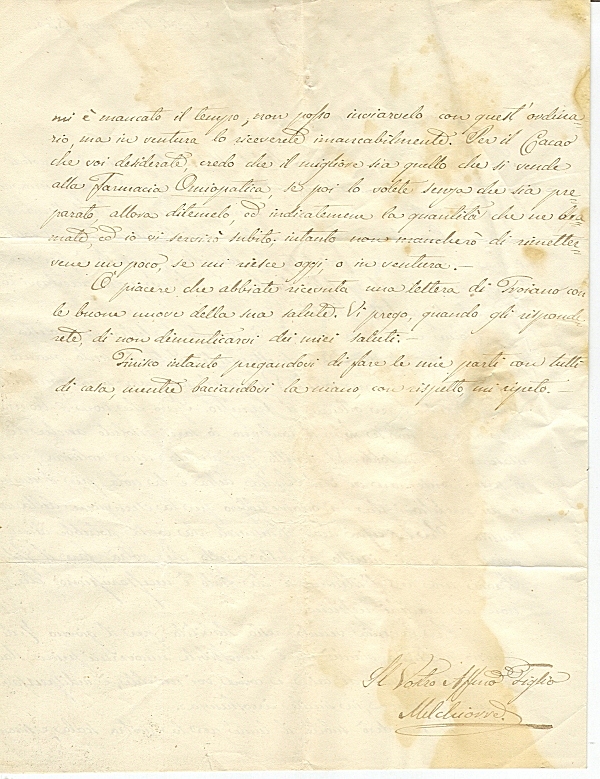 mi è mancato il tempo, non posso inviarvelo con quest'ordina=
rio, ma in ventura lo riceverete immancabilmente. Per il Cacao
che voi desiderate credo che il migliore sia quello che si vende
alla Farmacia Omiopatica, se poi lo volete senza che sia pre=
parato, allora ditemelo, ed indicatemene la quantità che ne bra=
mate, ed io vi servirò subito; intanto non mancherò di rimetter=
vene un poco, se mi riesce oggi, o in ventura. —
È piacere che abbiate ricevuta una lettera di Troiano con
le buone nuove della sua salute. Vi prego, quando gli rispond=
erete, di non dimenticarvi dei miei saluti. —
Finisco intanto pregandovi di fare le mie parti con tutti
di casa mentre baciandovi la mano, con rispetto mi ripeto. —
Il Vostro Affmo Figlio
Melchiorre